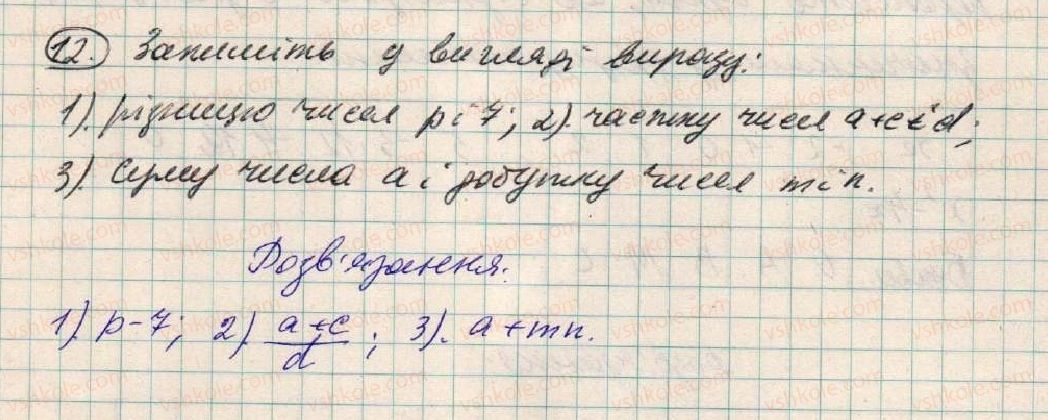 12. Запишіть у вигляді виразу:
1). різницю чисел p і 7; 2). частку чисел a+c і d;
3). суму числа a і добутку чисел m і n.
Розв'язання.
1). p-7; 2). (a+c)/d; 3). a+mn.